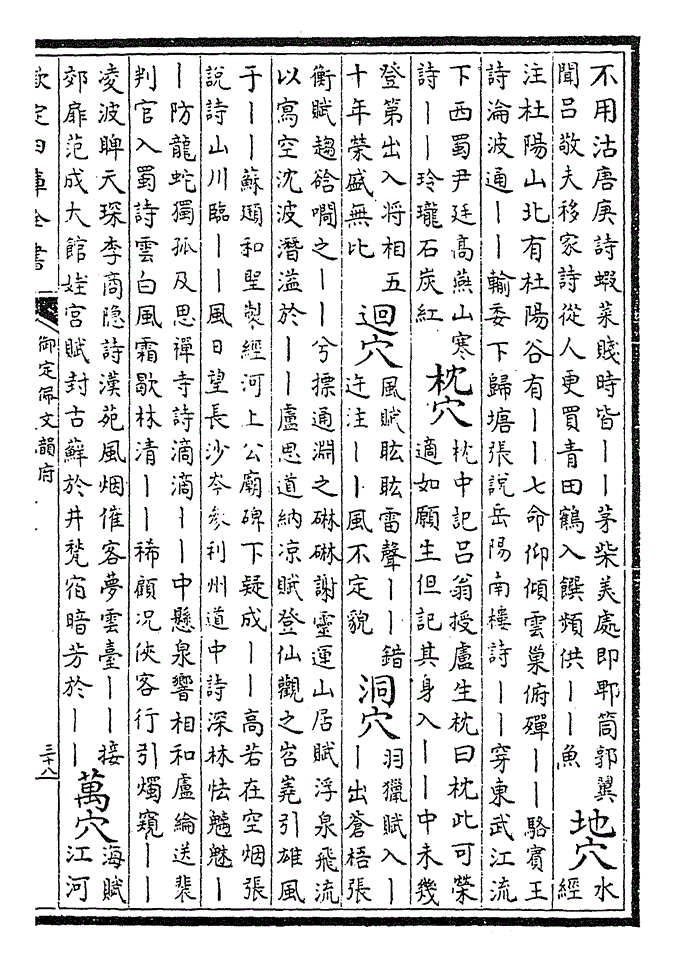 不用沽唐庚詩蝦菜賤時皆丨丨茅柴美處即郫筒郭翼
聞呂敬夫移家詩從人更買青田鶴入饌頻供丨丨魚
地穴
水
經
注杜陽山北有杜陽谷有丨丨七命仰傾雲巢俯殫丨丨駱賓王
詩淪波通丨丨輸委下歸塘張說岳陽南樓詩丨丨穿東武江流
下西蜀尹廷高燕山寒
詩丨丨玲瓏石炭紅
枕穴
枕中記呂翁授盧生枕曰枕此可榮
適如願生但記其身入丨丨中未幾
登第出入將相五
十年榮盛無比
迴穴
風賦眩眩雷聲丨丨錯
迕注丨丨風不定貌
洞穴
羽獵賦入丨
丨出蒼梧張
衡賦趨谽之丨丨兮摽通淵之碄碄謝靈運山居賦浮泉飛流
以寫空沈波潛溢於丨丨盧思道納凉賦登仙觀之岧嶤引雄風
于丨丨蘇頲和聖製經河上公廟碑下疑成丨丨高若在空烟張
說詩山川臨丨丨風日望長沙岑參利州道中詩深林怯魑魅丨
丨防龍蛇獨孤及思禪寺詩滴滴丨丨中懸泉響相和盧綸送裴
判官入蜀詩雲白風霜歇林清丨丨稀顧況俠客行引燭窺丨丨
凌波睥天琛李商隱詩漢苑風烟催客夢雲臺丨丨接
郊扉范成大館娃宮賦封古蘚於井甃宿暗芳於丨丨
萬穴
海賦
江河
欽定四庫全書
御定佩文韻府
三十八